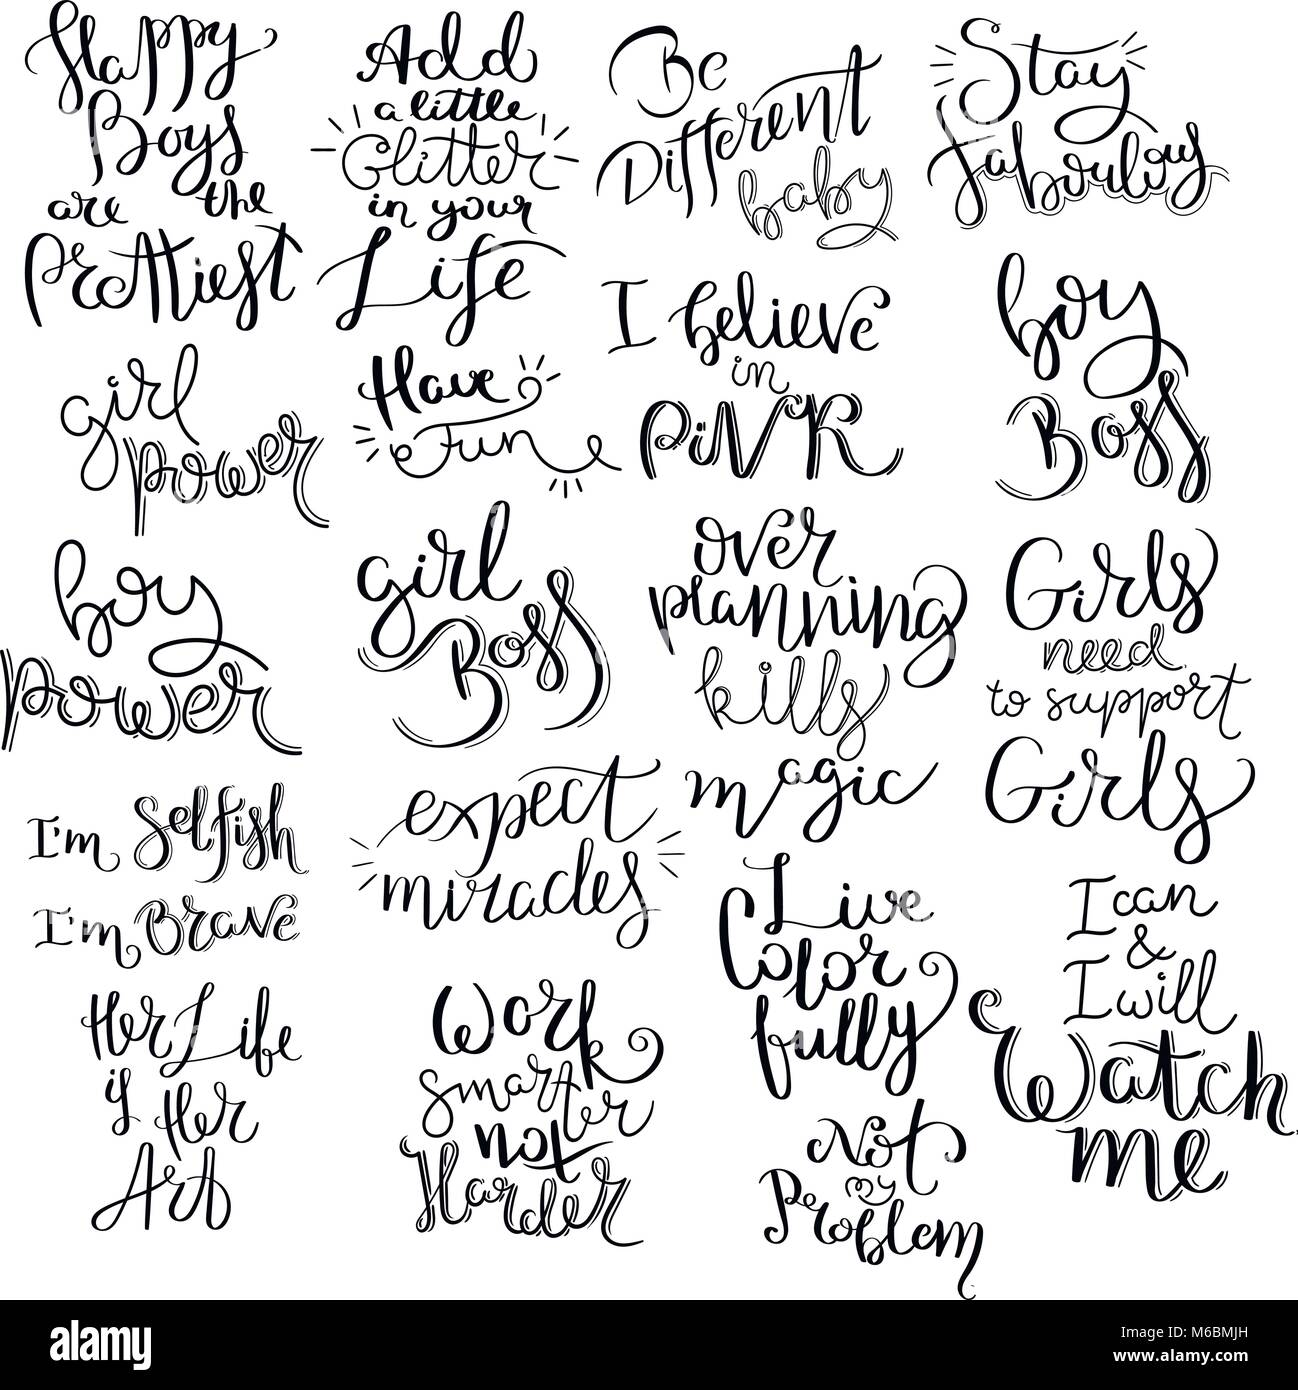 Happy
Boys
are the
Prettiest
Add
a little
Glitter
in your
Life
Be
Different
baby
Stay
faboulous
girl
power
Have
Fun
I believe
in
PiNK
boy
Boss
boy
power
girl
Boss
over
planning
kills
magic
Girls
need
to support
Girls
I'm Selfish
I'm Brave
expect
miracles
Live
Color
fully
I can
&
I will
Watch
me
Her Life
is Her
Art
Work
smarter
not
Harder
Not
my
Problem
alamy
Image ID: M6BMJH
www.alamy.com